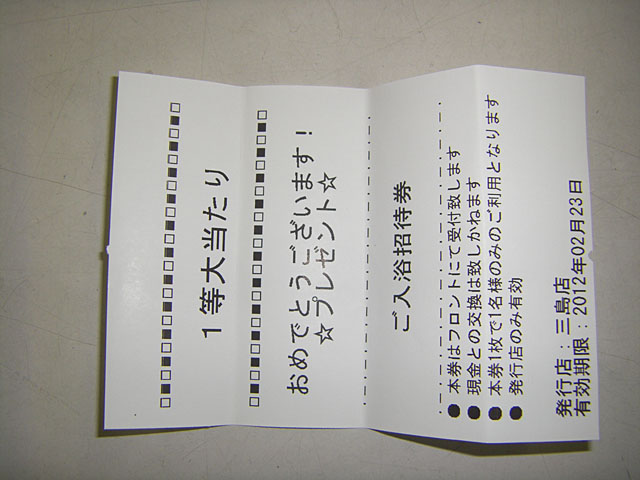 □■□■□■□■□■□■□■□■□■□■□
１等大当たり
□■□■□■□■□■□■□■□■□■□■□
おめでとうございます！
☆プレゼント☆
ご入浴招待券
●本券はフロントにて受付致します
●現金との交換は致しかねます
●本券1枚で1名様のみのご利用となります
●発行店のみ有効
発行店：三島店
有効期限：2012年02月23日